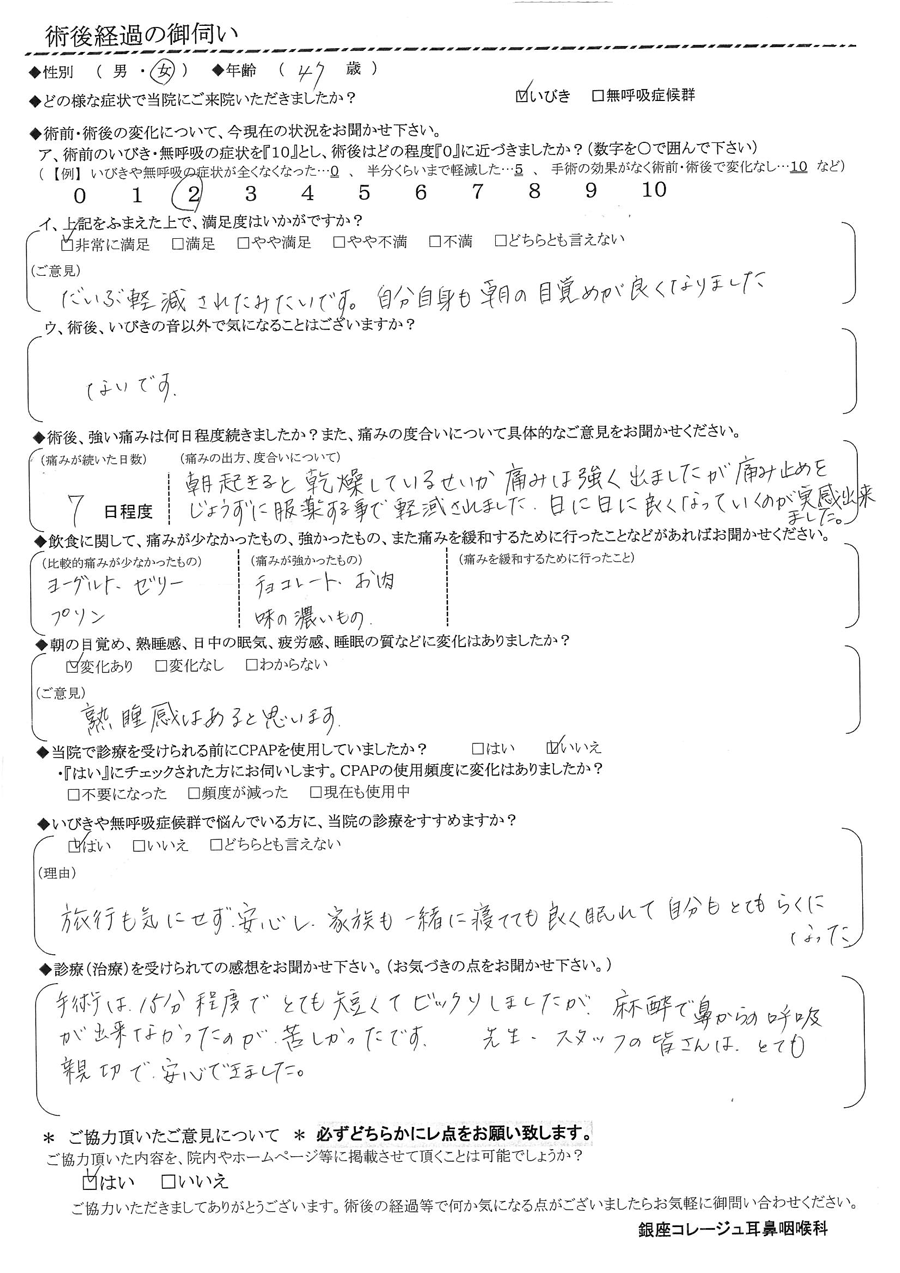 術後経過の御伺い
◆性別 （ 男 ・ 女 ） ◆年齢 （ 47 歳 ）
◆どの様な症状で当院にご来院いただきましたか？ ☑いびき □無呼吸症候群
◆術前・術後の変化について、今現在の状況をお聞かせ下さい。
ア、術前のいびき・無呼吸の症状を『10』とし、術後はどの程度『0』に近づきましたか？（数字を〇で囲んで下さい）
（【例】 いびきや無呼吸の症状が全くなくなった…0 、 半分くらいまで軽減した…5 、 手術の効果がなく術前・術後で変化なし…10 など）
0 1 2 3 4 5 6 7 8 9 10
イ、上記をふまえた上で、満足度はいかがですか？
☑非常に満足 □満足 □やや満足 □やや不満 □不満 □どちらとも言えない
（ご意見）
だいぶ軽減されたみたいです。自分自身も朝の目覚めが良くなりました
ウ、術後、いびきの音以外で気になることはございますか？
ないです.
◆術後、強い痛みは何日程度続きましたか？また、痛みの度合いについて具体的なご意見をお聞かせください。
（痛みが続いた日数） （痛みの出方、度合いについて）
朝起きると乾燥しているせいか痛みは強く出ましたが痛み止めを
7 日程度 じょうずに服薬する事で軽減されました. 日に日に良くなっていくのが実感出来
ました。
◆飲食に関して、痛みが少なかったもの、強かったもの、また痛みを緩和するために行ったことなどがあればお聞かせください。
（比較的痛みが少なかったもの） （痛みが強かったもの） （痛みを緩和するために行ったこと）
ヨーグルト、ゼリー チョコレート、お肉
プリン 味の濃いもの.
◆朝の目覚め、熟睡感、日中の眠気、疲労感、睡眠の質などに変化はありましたか？
☑変化あり □変化なし □わからない
（ご意見）
熟睡感はあると思います.
◆当院で診療を受けられる前にCPAPを使用していましたか？ □はい ☑いいえ
・『はい』にチェックされた方にお伺いします。CPAPの使用頻度に変化はありましたか？
□不要になった □頻度が減った □現在も使用中
◆いびきや無呼吸症候群で悩んでいる方に、当院の診療をすすめますか？
☑はい □いいえ □どちらとも言えない
（理由）
旅行も気にせず、安心し、家族も一緒に寝てても良く眠れて自分もとてもらくに
なった
◆診療（治療）を受けられての感想をお聞かせ下さい。（お気づきの点をお聞かせ下さい。）
手術は、15分程度でとても短くてビックリしましたが、麻酔で鼻からの呼吸
が出来なかったのが、苦しかったです. 先生、スタッフの皆さんは、とても
親切で、安心できました。
＊ ご協力頂いたご意見について ＊ 必ずどちらかにレ点をお願い致します。
ご協力頂いた内容を、院内やホームページ等に掲載させて頂くことは可能でしょうか？
☑はい □いいえ
ご協力いただきましてありがとうございます。術後の経過等で何か気になる点がございましたらお気軽に御問い合わせください。
銀座コレージュ耳鼻咽喉科